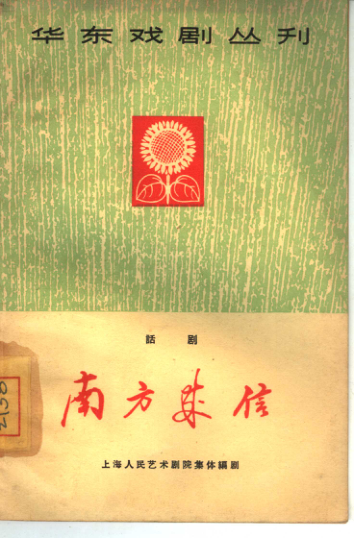 华东戏剧丛刊
話剧
南方来信
上海人民艺术剧院集体编剧
2138